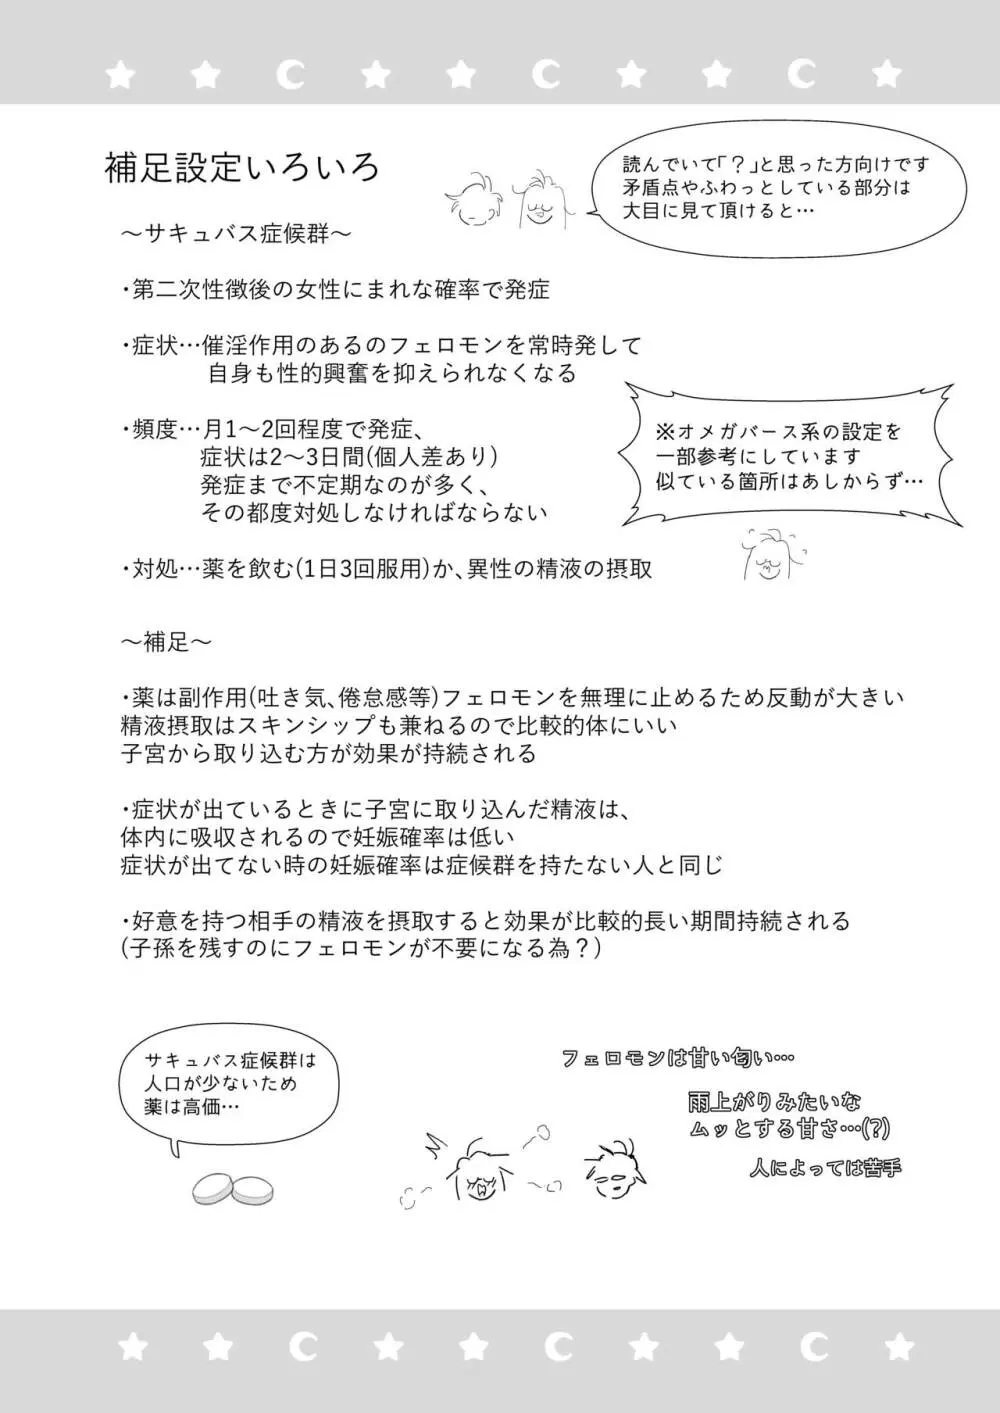 補足設定いろいろ
読んでいて「？」と思った方向けです
矛盾点やふわっとしている部分は
大目に見て頂けると…
～サキュバス症候群～
・第二次性徴後の女性にまれな確率で発症
・症状…催淫作用のあるのフェロモンを常時発して
自身も性的興奮を抑えられなくなる
・頻度…月1～2回程度で発症、
症状は2～3日間(個人差あり)
発症まで不定期なのが多く、
その都度対処しなければならない
※オメガバース系の設定を
一部参考にしています
似ている箇所はあしからず…
・対処…薬を飲む(1日3回服用)か、異性の精液の摂取
～補足～
・薬は副作用(吐き気、倦怠感等)フェロモンを無理に止めるため反動が大きい
精液摂取はスキンシップも兼ねるので比較的体にいい
子宮から取り込む方が効果が持続される
・症状が出ているときに子宮に取り込んだ精液は、
体内に吸収されるので妊娠確率は低い
症状が出てない時の妊娠確率は症候群を持たない人と同じ
・好意を持つ相手の精液を摂取すると効果が比較的長い期間持続される
(子孫を残すのにフェロモンが不要になる為？)
サキュバス症候群は
人口が少ないため
薬は高価…
フェロモンは甘い匂い…
雨上がりみたいな
ムッとする甘さ…(?)
人によっては苦手